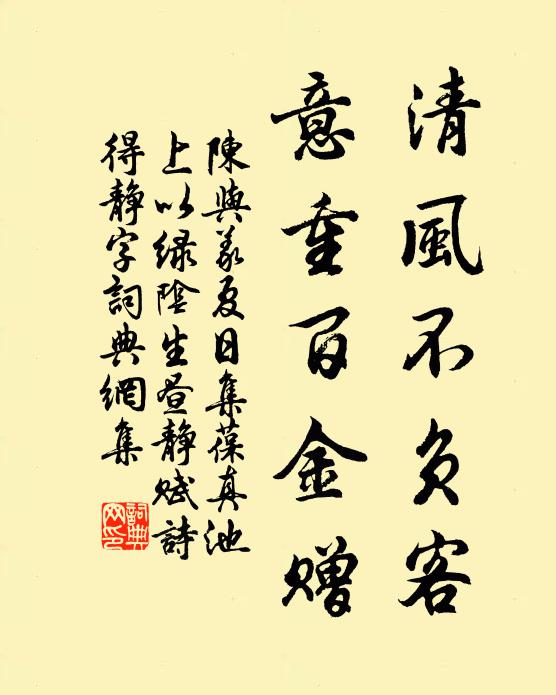 清風不負客
意重百金贈
陳與義夏日集葆真池
上以绿陰生昼静赋詩
得静字詞典網集
詞典網印